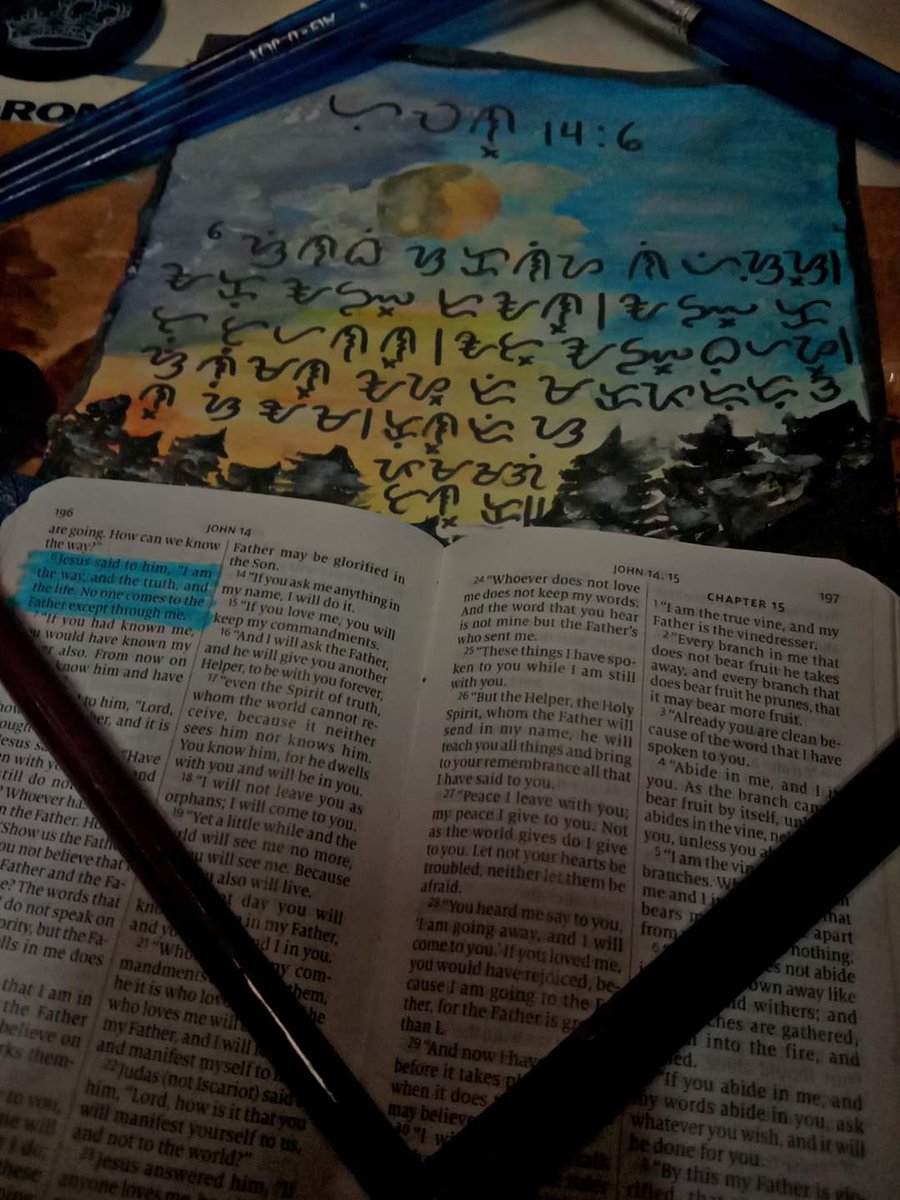 ᜑᜓᜏᜈ᜔ 14:6
6 ᜐᜒᜈᜊᜒ ᜐ ᜃᜈᜒᜌ ᜈᜒ ᜑᜒᜐᜓᜐ᜔᜵
ᜀᜃᜓ ᜀᜅ᜔ ᜇᜀᜈ᜔᜵ ᜀᜅ᜔ ᜃ
ᜆᜓᜆᜓᜑᜈᜈ᜔᜵ ᜀᜆ᜔ ᜀᜅ᜔ ᜊᜓᜑᜌ᜔᜵
ᜐᜒᜈᜓᜋᜈ᜔ ᜀᜌ᜔ ᜇᜒ ᜋᜃᜉᜇᜓᜇᜓᜂ
ᜈ᜔ ᜐ ᜀᜋ᜵ ᜃᜓᜈ᜔ᜇᜒ ᜐ
ᜉᜋᜋᜄᜒ
ᜆᜈ᜔ ᜃᜓ᜶
196
JOHN 14
are going. How can we know
the way?"
6 Jesus said to him, "I am
the way, and the truth, and
the life. No one comes to the
Father except through me.
"If you had known me,
would have known my
also. From now on
know him and have
to him, "Lord,
and it is
"Have
and
still do
Whoever
the Father.
"Show us the
you not believe that
Father and the Fa-
The words that
I do not speak on
but the Fa-
in me does
that I am in
the Father
believe on
them-
to you,
will
I do,
these
Father may be glorified in
the Son.
14 "If you ask me anything in
my name, I will do it.
15 "If you love me, you will
keep my commandments.
16 "And I will ask the Father,
and he will give you another
Helper, to be with you forever,
17 "even the Spirit of truth,
whom the world cannot re-
ceive, because it neither
sees him nor knows him.
You know him, for he dwells
with you and will be in you.
18 "I will not leave you as
orphans; I will come to you.
19 "Yet a little while and the
will see me no more,
will see me. Because
also will live.
day you will
in my Father,
and I in you.
21 com-
mandments them,
he it is who
who loves me will
my Father, and I will
and manifest myself to
22 Judas (not Iscariot) said
him, "Lord, how is it that you
will manifest yourself to us,
and not to the world?"
23 Jesus answered him, "If
anyone loves me,
JOHN 14, 15
197
24 "Whoever does not love
me does not keep my words.
And the word that you hear
is not mine but the Father's
who sent me.
25 "These things I have spo-
ken to you while I am still
with you.
26 "But the Helper, the Holy
Spirit, whom the Father will
send in my name, he will
teach you all things and bring
to your remembrance all that
I have said to you.
27 "Peace I leave with you;
my peace I give to you. Not
as the world gives do I give
to you. Let not your hearts be
troubled, neither let them be
afraid.
28 "You heard me say to you,
'I am going away, and I will
come to you.' If you loved me,
you would have rejoiced, be-
cause I am going to the
ther, for the Father is
than I.
29 "And now I have
before it takes
when it does
may believe
30 "I
CHAPTER 15
1 "I am the true vine, and my
Father is the vinedresser.
2 "Every branch in me that
does not bear fruit he takes
away, and every branch that
does bear fruit he prunes, that
it may bear more fruit.
3 "Already you are clean be-
cause of the word that I have
spoken to you.
4 "Abide in me, and I
you. As the branch
bear fruit by itself,
abides in the vine,
you, unless you
5 "I am the
branches.
me and I
bears apart
from nothing.
6 not abide
away like
and withers; and
are gathered,
into the fire, and
"If you abide in me, and
my words abide in you, ask
whatever you wish, and it will
be done for you.
8 "By this my Father is